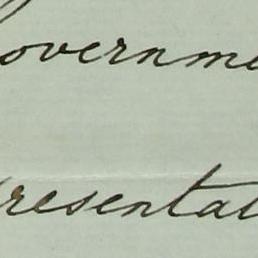 overnme
resentat